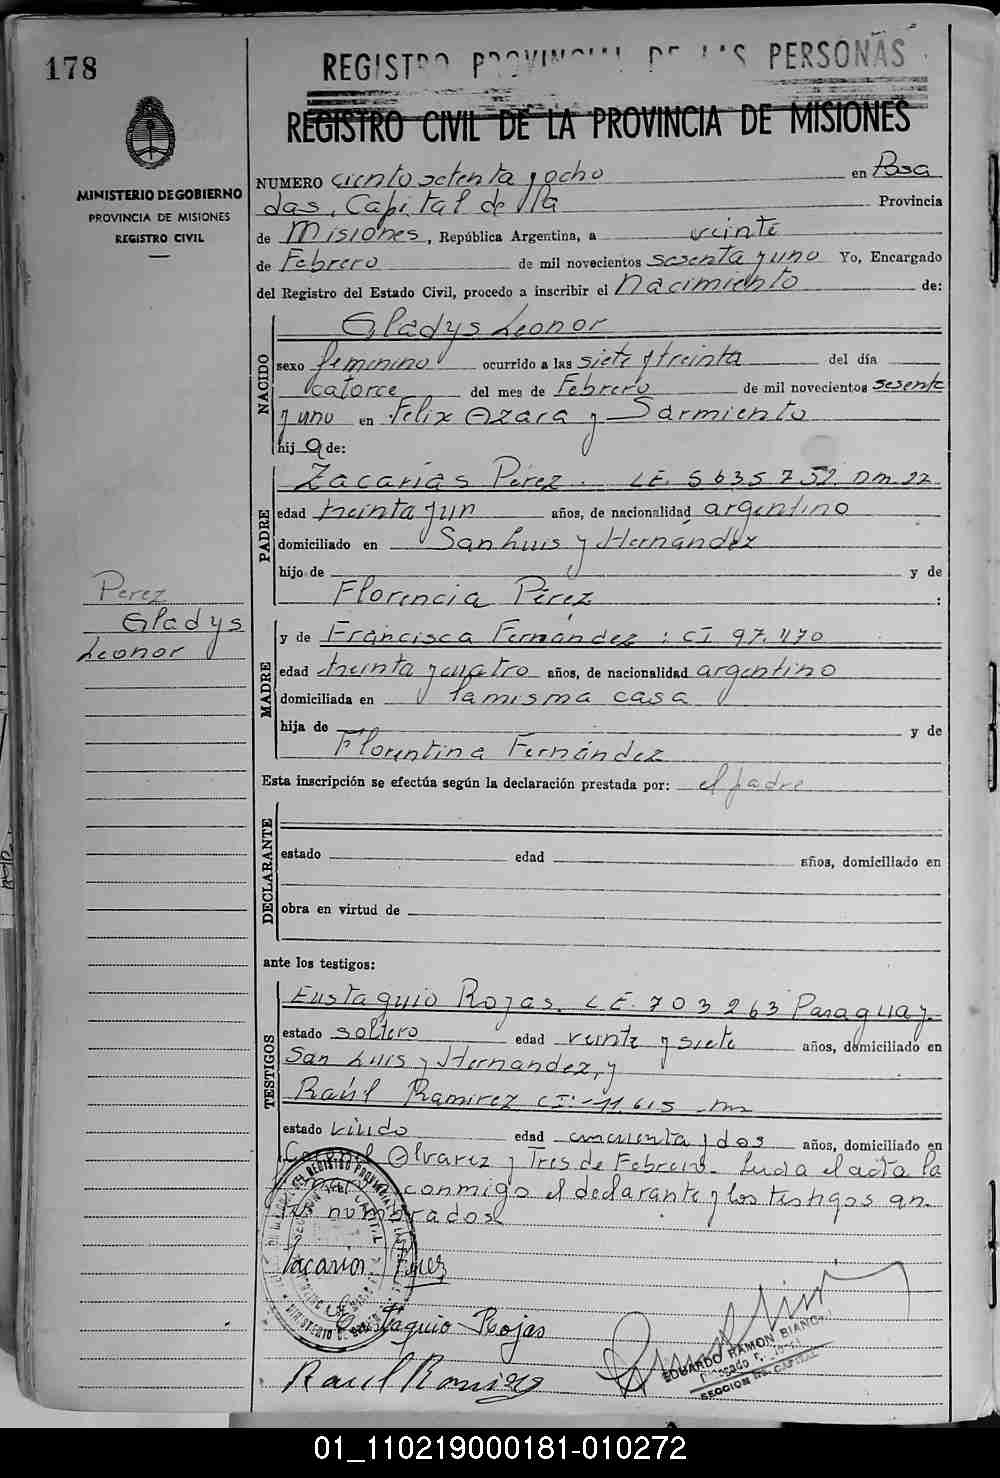 178
REGISTRO PROVINCIAL DE LAS PERSONAS
REGISTRO CIVIL DE LA PROVINCIA DE MISIONES
MINISTERIO DE GOBIERNO
PROVINCIA DE MISIONES
REGISTRO CIVIL
NUMERO ciento setenta y ocho en Posa
das, Capital de la Provincia
de Misiones, República Argentina, a veinte
de Febrero de mil novecientos sesenta y uno Yo, Encargado
del Registro del Estado Civil, procedo a inscribir el Nacimiento de:
NACIDO
Gladys Leonor
sexo femenino ocurrido a las siete y treinta del día
catorce del mes de Febrero de mil novecientos sesenta
y uno en Felix Azara y Sarmiento
hij a de:
PADRE
Zacarías Pérez. LE. 5635752. DM.22
edad treinta y un años, de nacionalidad argentino
domiciliado en San Luis y Hernandez
hijo de y de
Florencia Pérez :
Perez
Gladys
Leonor
MADRE
y de Francisca Fernández : CI 97.470
edad treinta y cuatro años, de nacionalidad argentino
domiciliada en la misma casa
hija de y de
Florentina Fernández
Esta inscripción se efectúa según la declaración prestada por: el padre
DECLARANTE
estado edad años, domiciliado en
obra en virtud de
ante los testigos:
TESTIGOS
Eustaquio Rojas. LE. 703263 Paraguay.
estado soltero edad veinte y siete años, domiciliado en
San Luis y Hernandez, y
Raúl Ramirez CI:-11.615
estado viudo edad cincuenta y dos años, domiciliado en
Coronel Alvarez y Tres de Febrero. Leida el acta la
conmigo el declarante y los testigos an
te nombrados
Zacarias Perez
Eustaquio Rojas
Raul Ramirez
EDUARDO RAMON BIANCHI
SECCION CAPITAL
01_110219000181-010272